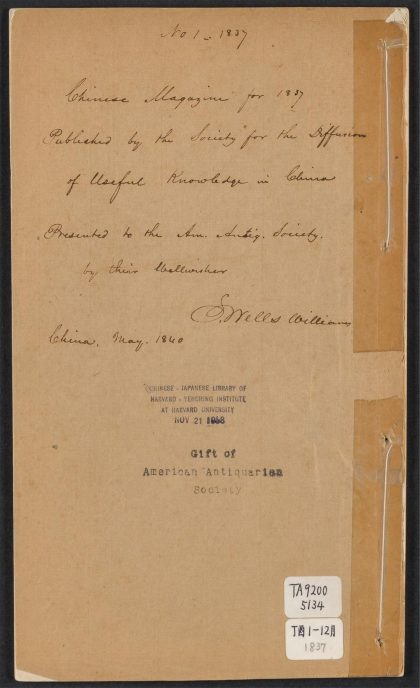 No 1 - 1837
Chinese Magazine for 1837
Published by the Society for the Diffusion
of Useful Knowledge in China
Presented to the Am. Antiq. Society.
by their Wellwisher
S. Wells Williams
China, May. 1840
CHINESE - JAPANESE LIBRARY OF
HARVARD - YENCHING INSTITUTE
AT HARVARD UNIVERSITY
NOV 21
Gift of
American Antiquarian
Society
TA9200
5134
1-12月
1837